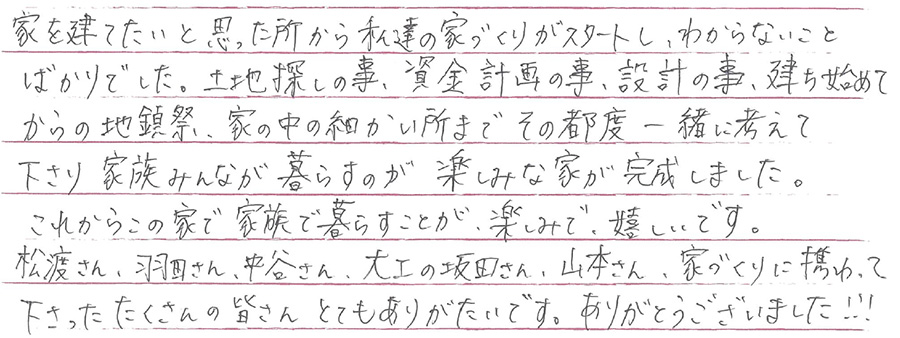 家を建てたいと思った所から私達の家づくりがスタートし、わからないこと
ばかりでした。土地探しの事、資金計画の事、設計の事、建ち始めて
からの地鎮祭、家の中の細かい所まで その都度 一緒に考えて
下さり 家族みんなが暮らすのが 楽しみな家が完成しました。
これからこの家で家族で暮らすことが、楽しみで、嬉しいです。
松渡さん、羽田さん、中谷さん、大工の坂田さん、山本さん、家づくりに携わって
下さった たくさんの皆さん とてもありがたいです。ありがとうございました!!!